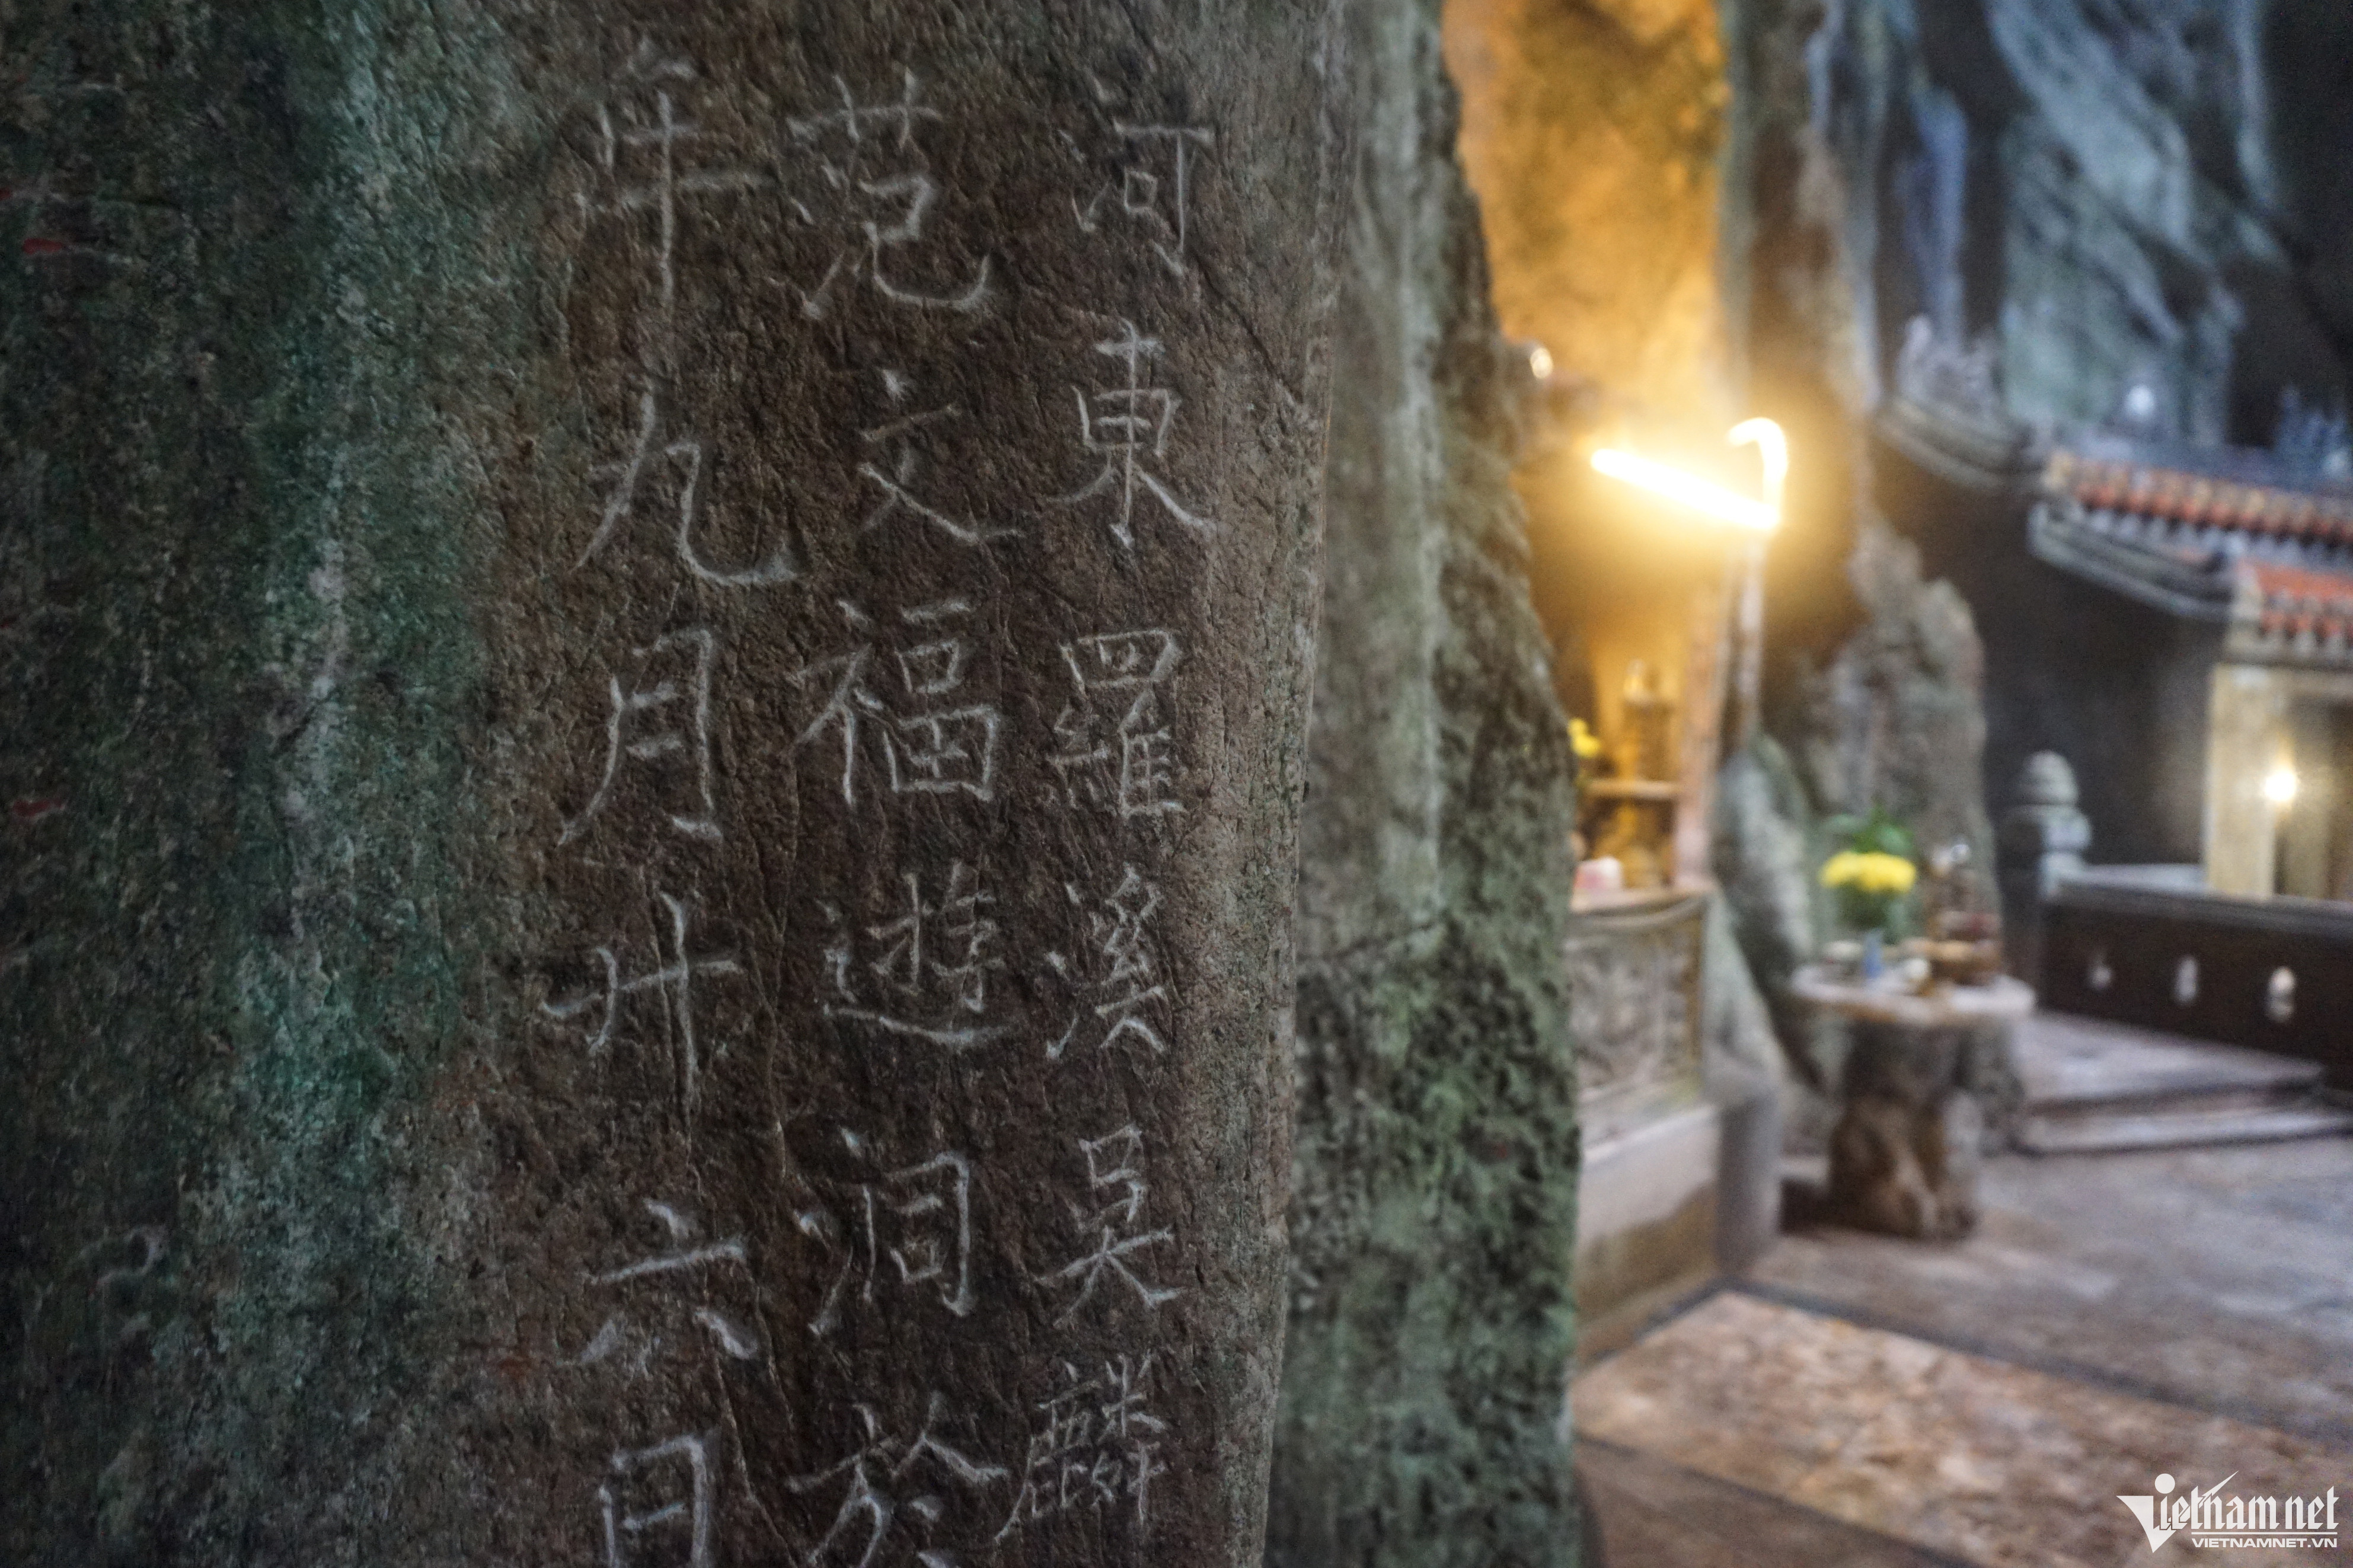 河東羅溪吴麟
范文福遊洞於
年九月廾六日
vietnamnet
VIETNAMNET.VN